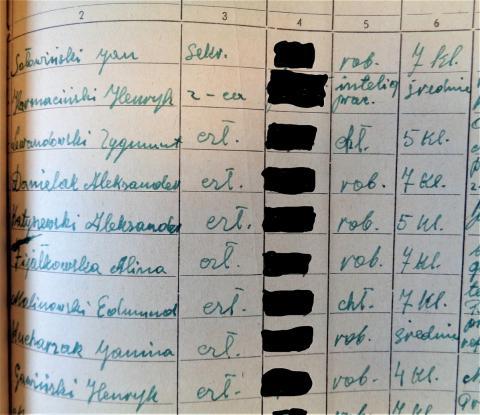 2 3 4 5 6
Sołowiński Jan sekr. rob. 7 kl.
Harmaciński Henryk z-ca intelig. prac. średnie
Lewandowski Zygmunt czł. chł. 5 kl.
Danielak Aleksander czł. rob. 7 kl.
Aleksander czł. rob. 5 kl.
Fijałkowska Alina czł. rob. 7 kl.
Malinowski Edmund czł. chł. 7 kl.
Kucharzak Janina czł. rob. średnie
Gawiński Henryk czł. rob. 4 kl.